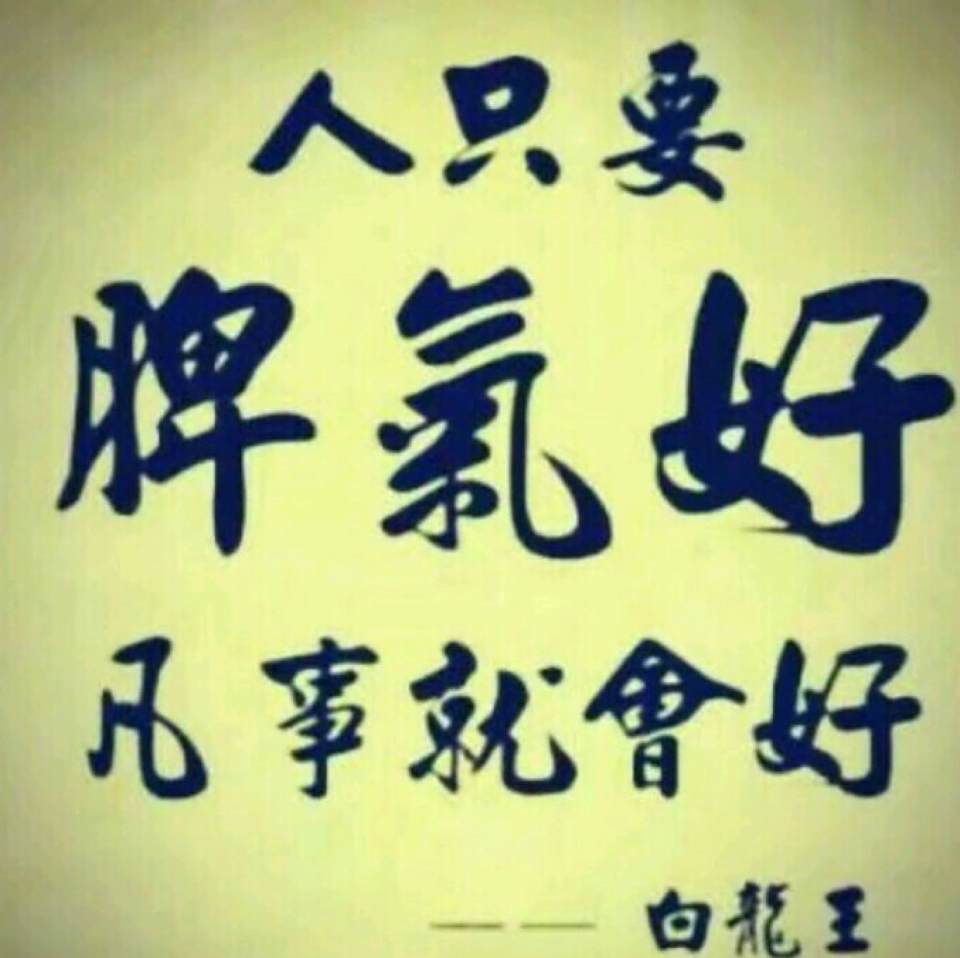 人只要
脾氣好
凡事就會好
——白龍王